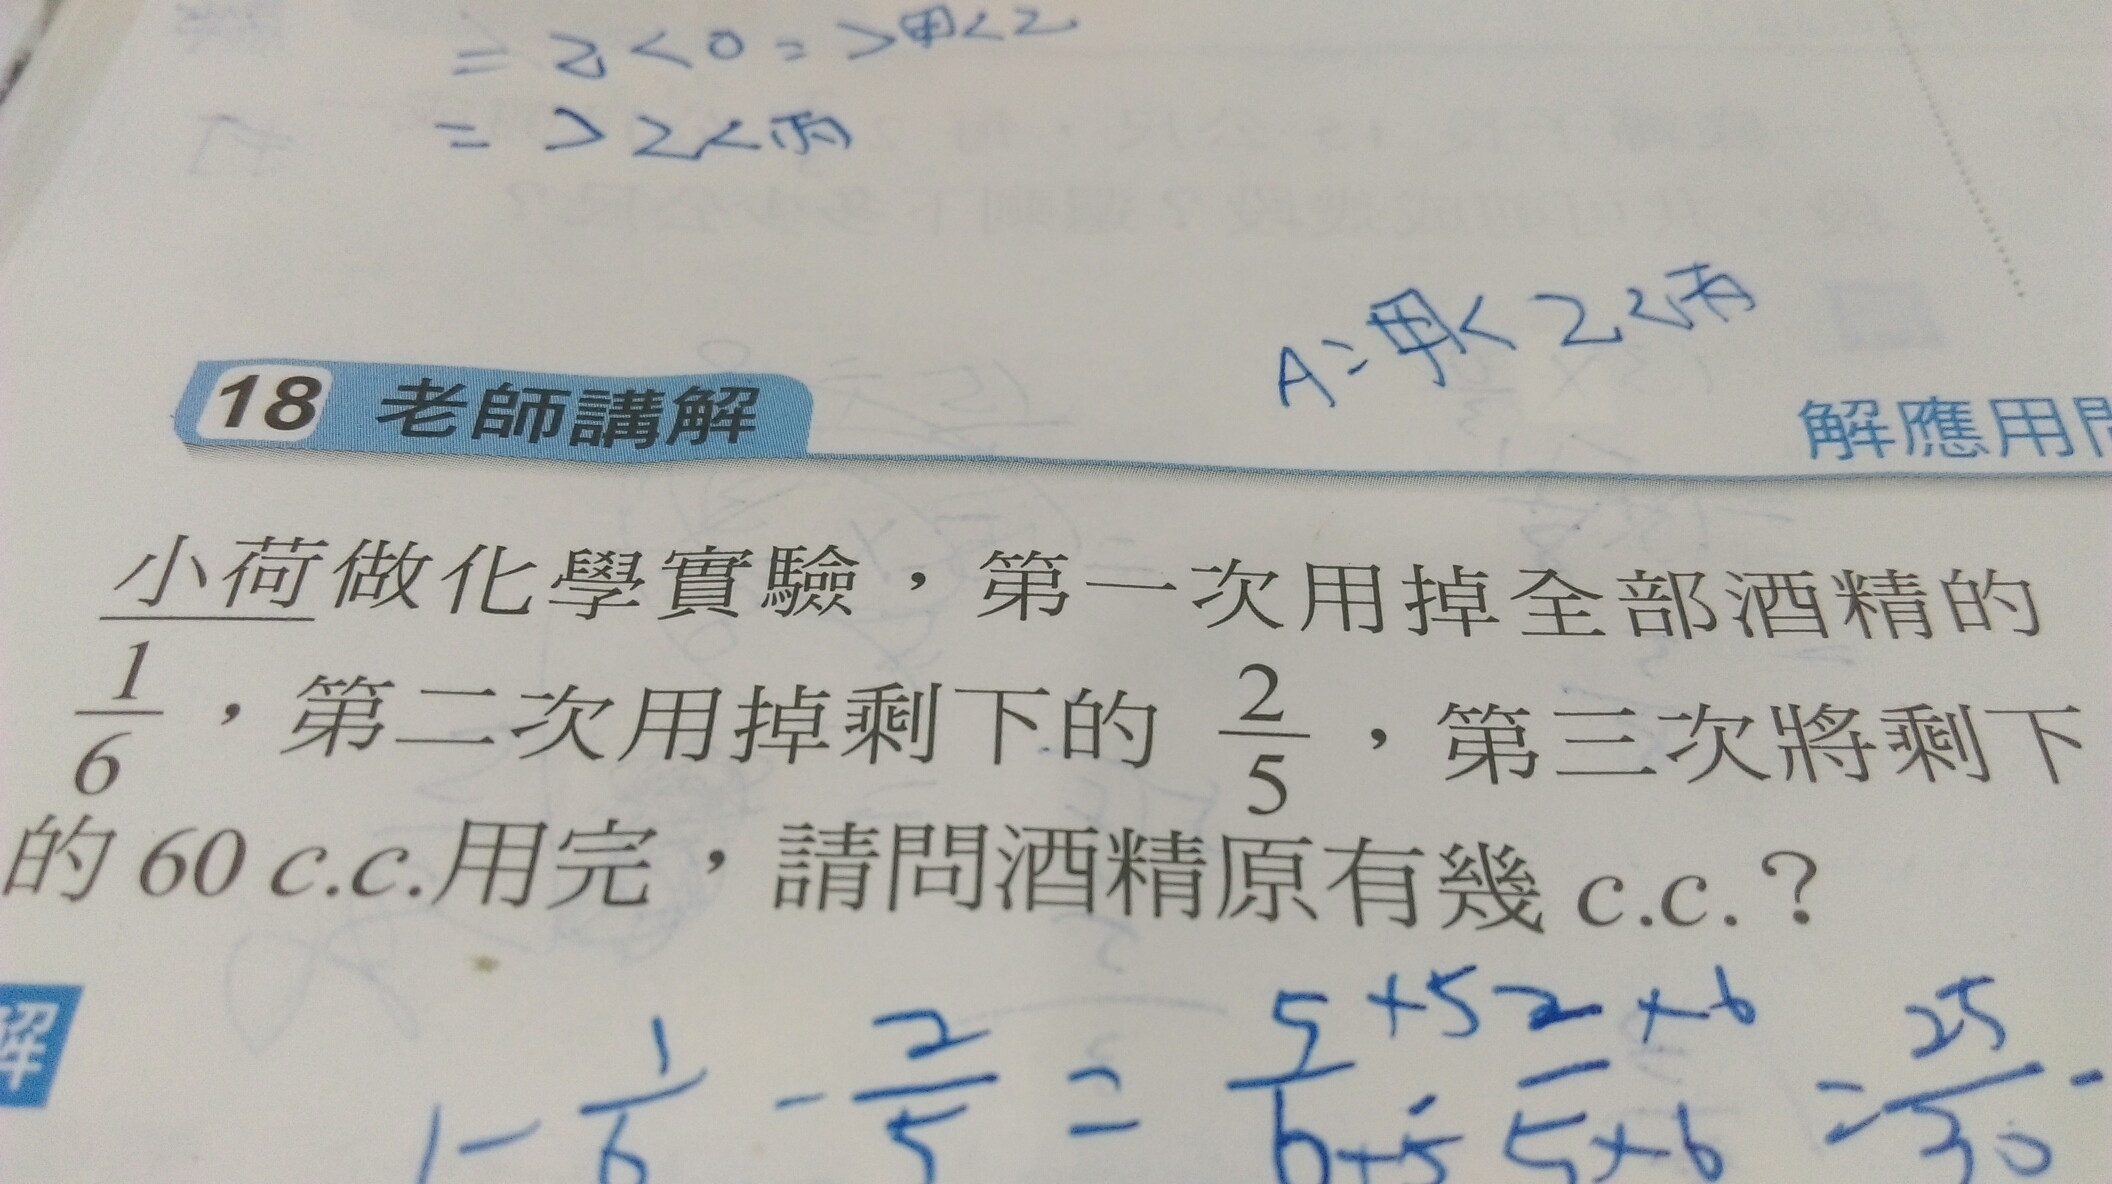 = 乙 < 0 = > 甲 < 乙
= > 乙 < 丙
A = 甲 < 乙 < 丙
18 老師講解
解應用
小荷做化學實驗，第一次用掉全部酒精的
1/6，第二次用掉剩下的 2/5，第三次將剩下
的 60 c.c.用完，請問酒精原有幾 c.c.？
解
1 - 1/6 - 2/5 = 5×5/6×5 - 2×6/5×6 = 25/30 -